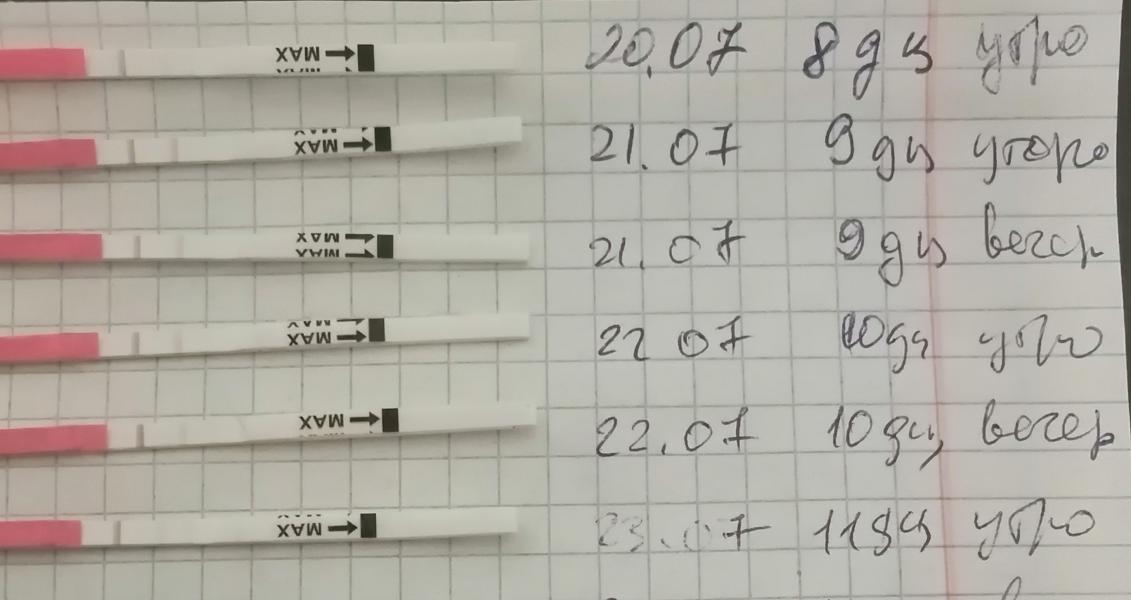 MAX 20.07 8 дц утро
MAX 21.07 9 дц утро
MAX 21.07 9 дц вечер
MAX 22 07 10 дц утро
MAX 22.07 10 дц, вечер
MAX 23.07 11 дц утро